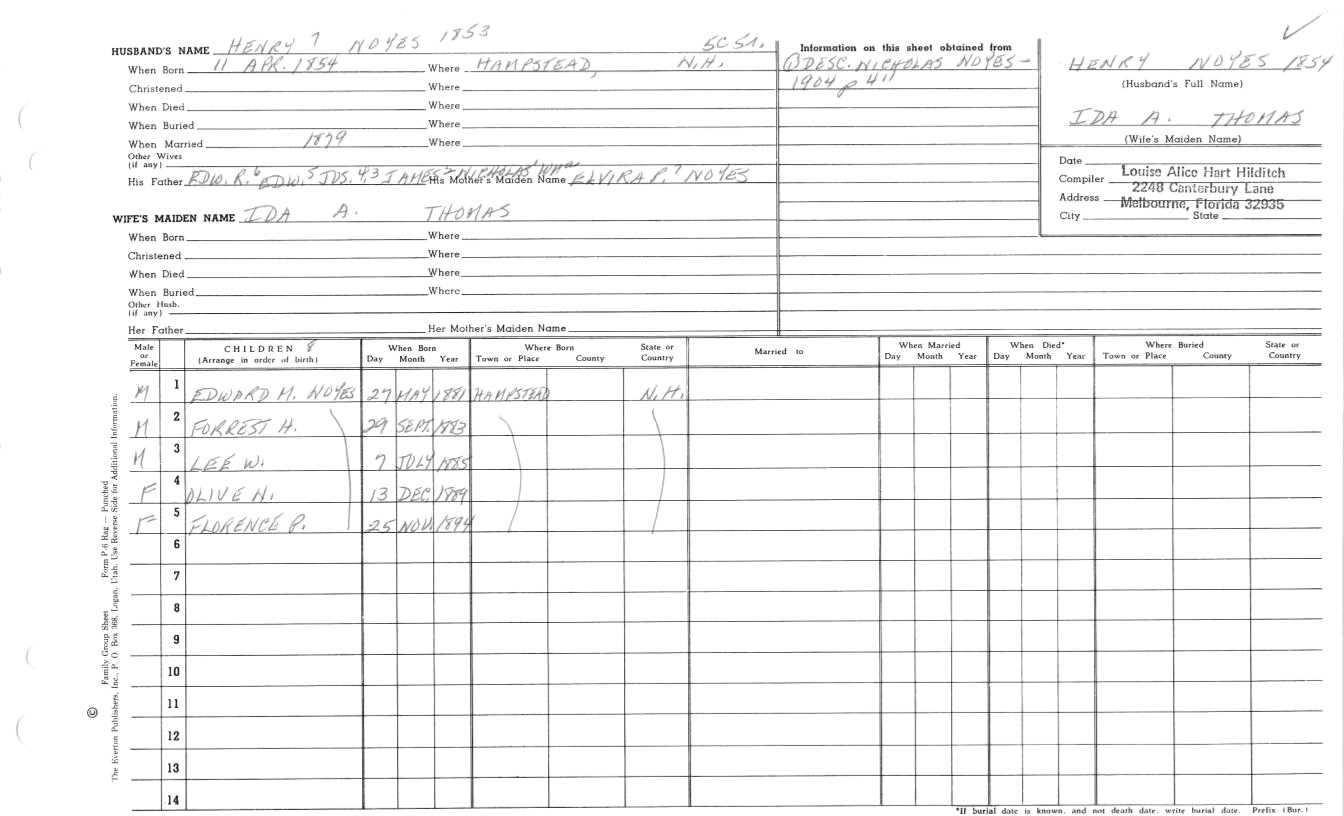 HUSBAND'S NAME HENRY 7 NOYES 1853
When Born 11 APR. 1854 Where HAMPSTEAD, N.H.
Christened Where
When Died Where
When Buried Where
When Married 1879 Where
Other Wives
(if any)
His Father EDW. R.6 EDW.5 JOS. 4,3 JAMES2 NICHOLAS1 His Mother's Maiden Name ELVIRA P.7 NOYES
WIFE'S MAIDEN NAME IDA A. THOMAS
When Born Where
Christened Where
When Died Where
When Buried Where
Other Husb.
(if any)
Her Father Her Mother's Maiden Name
Information on this sheet obtained from
① DESC. NICHOLAS NOYES –
1904 p 411
HENRY NOYES 1854
(Husband's Full Name)
IDA A. THOMAS
(Wife's Maiden Name)
Date
Compiler Louise Alice Hart Hilditch
Address 2248 Canterbury Lane
City Melbourne, Florida 32935 State
Male or Female CHILDREN 8 (Arrange in order of birth) When Born Day Month Year Where Born Town or Place County State or Country Married to When Married Day Month Year When Died* Day Month Year Where Buried Town or Place County State or Country
M 1 EDWARD M. NOYES 27 MAY 1881 HAMPSTEAD N.H.
M 2 FORREST H. 29 SEPT. 1883
M 3 LEE W. 7 JULY 1885
F 4 OLIVE N. 13 DEC 1889
F 5 FLORENCE P. 25 NOV. 1894
6
7
8
9
10
11
12
13
14
*If burial date is known, and not death date, write burial date. Prefix (Bur.)
© Family Group Sheet Form P-6 Rag — Punched
The Everton Publishers, Inc., P. O. Box 368, Logan, Utah. Use Reverse Side for Additional Information.